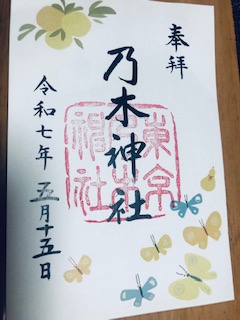 奉拝
乃木神社
東京乃木神社
令和七年 五月十五日